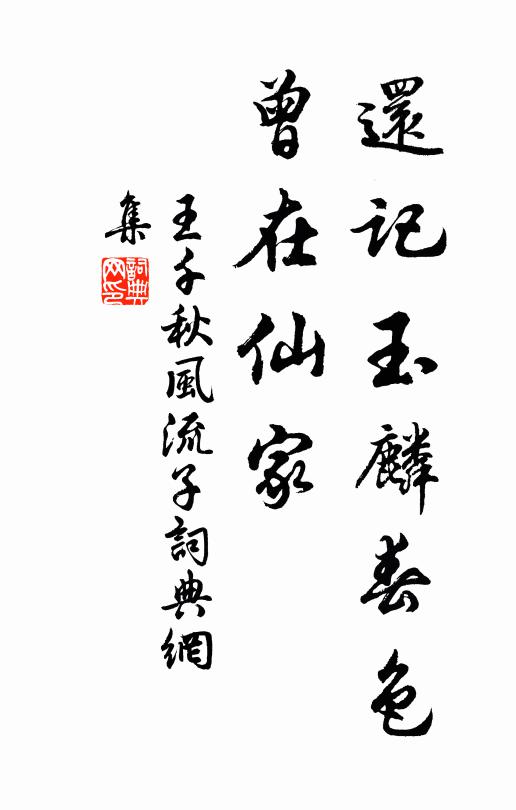 還記玉麟春色
曾在仙家
王千秋風流子詞典網
集
詞典
网印